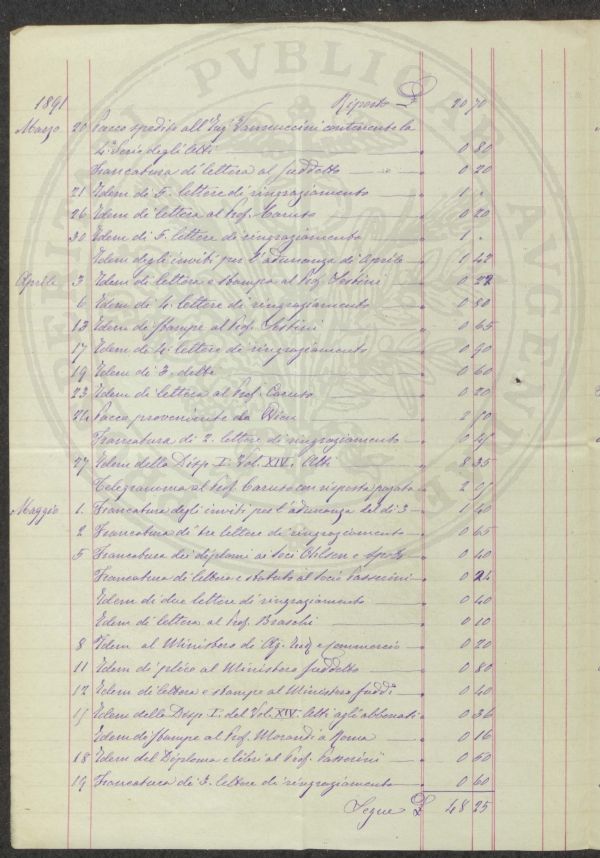 PVBLICAE
1891 Riporto £ 20 70
Marzo 20 Pacco spedito all'Ing. Vannuccini contenente la
4ª Serie degli Atti 0 80
Francatura di lettera al suddetto 0 20
21 Idem di 5. lettere di ringraziamento 1 .
26 Idem di lettera al Prof. Caruso 0 20
30 Idem di 5. lettere di ringraziamento 1 .
Idem degli inviti per l'adunanza di Aprile 1 42
Aprile 3 Idem di lettera e stampa al Prof. Sestini 0 22
6 Idem di 4. lettere di ringraziamento 0 80
13 Idem di stampe al Prof. Sestini 0 65
17 Idem di 4. lettere di ringraziamento 0 90
19 Idem di 3. dette 0 60
23 Idem di lettera al Prof. Caruso 0 20
24 Pacco proveniente da 2 50
Francatura di 2. lettere di ringraziamento 0 45
27 Idem della Disp. I. Vol. XIV. Atti 8 35
Telegramma al Prof. Caruso con risposta pagata 2 05
Maggio 1. Francatura degli inviti per l'adunanza del dì 3 1 40
2 Francatura di tre lettere di ringraziamento 0 65
5 Francatura dei diplomi ai soci Ohlsen e 0 40
Francatura di lettera e statuto al socio Passerini 0 24
Idem di due lettere di ringraziamento 0 40
Idem di lettera al Prof. Braschi 0 10
8 Idem al Ministero di Ag. Ind. e Commercio 0 20
11 Idem di plico al Ministero suddetto 0 80
12 Idem di lettera e stampe al Ministero sudd.º 0 40
15 Idem della Disp. I. del Vol. XIV. Atti agli abbonati 0 36
Idem di stampe al Prof. Morandi a Roma 0 16
18 Idem del Diploma e libri al Prof. Passerini 0 60
19 Francatura di 3. lettere di ringraziamento 0 60
Segue £ 48 25